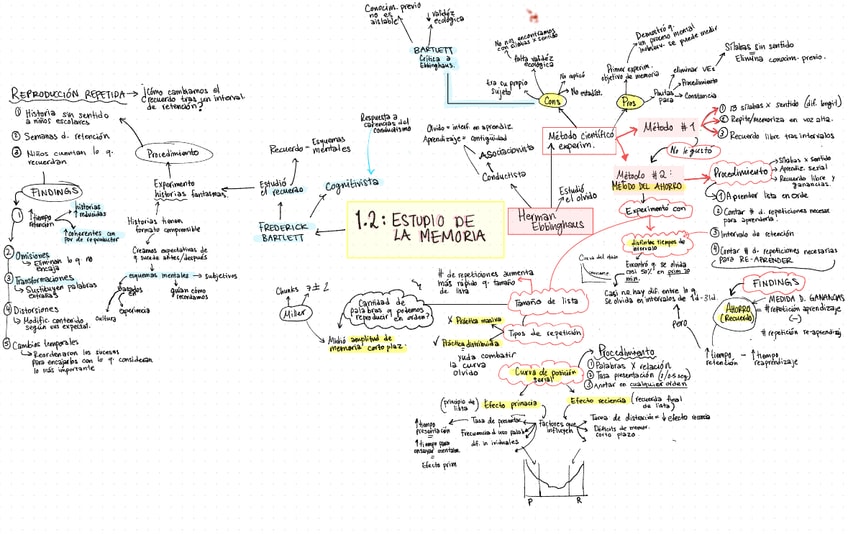 Conocim. previo
no es
aislable
↓ validez
ecológica
BARTLETT
Crítica a
Ebbinghaus.
No nos encontramos
con sílabas x sentido
falta validez
ecológica
Era su propio
sujeto
No aplicó
No estadist.
Cons
Demostró q.
un proceso mental
se puede medir
Primer experim.
objetivo de memoria
Pros
Pautas
para
eliminar VEs
Procedimiento
Constancia
Sílabas sin sentido
Elimina conocim. previo.
REPRODUCCIÓN REPETIDA → ¿Cómo cambiamos el
recuerdo tras un interval
de retención?
① Historia sin sentido
a niños escolares
② Semanas d. retención
③ Niños cuentan lo q.
recuerdan
Procedimiento
FINDINGS
Experimento
historias fantasmas.
① ↑ tiempo
retención
historias
reducidas
↑ coherentes con
por de reproductor
② Omisiones
↳ Eliminan lo q. no
encaja
③ Transformaciones
↳ Sustituyen palabras
extrañas
④ Distorsiones
↳ Modific. contenido
según sus expectat.
⑤ Cambios temporales
↳ Reordenaron los sucesos
para encajarlos con lo q. consideran
lo más importante
Historias tienen
formato comprensible
Creamos expectativas de
q. sucede antes/después
esquemas mentales → subjetivos
basados en
cultura
experiencia
guían cómo
recordamos
Recuerdo - Esquemas
mentales
Estudió
el recuerdo
Respuesta a
carencias del
conductismo
Cognitivista
FREDERICK
BARTLETT
1.2: ESTUDIO DE
LA MEMORIA
Olvido = interf. en aprendiz.
Aprendizaje = contigüidad
Asociacionista
Conductista
Estudió
el olvido
Herman
Ebbinghaus
Método científico
experim.
Método #1
① 13 sílabas x sentido (dif. longit)
② Repite/memoriza en voz alta.
③ Recuerdo libre tras intervalos
No le gustó
Método #2:
MÉTODO DEL AHORRO
Procedimiento
Sílabas x sentido
Aprendiz. serial
Recuerdo libre y
ganancias.
① Aprender lista en orde
② Contar # d. repeticiones neces
para aprenderla
③ Intervalo de retención
④ Contar # d. repeticiones necesarias
para RE-APRENDER
Experimento con
distintos tiempos de
intervalo
Curva del olvido
Encontró q. se olvida
casi 50% en prim 20
min.
Casi no hay dif. entre lo q.
se olvida en intervalos de 1d-31d.
pero
↑ tiempo
retención → ↑ tiempo
reaprendizaje
FINDINGS
AHORRO
(Recuerdo)
MEDIDA D. GANANCIAS
# repetición aprendizaje
(-)
# repetición re-aprendizaj
Tamaño de lista
# de repeticiones aumenta
más rápido q. tamaño
de lista
Cantidad de
palabras q podemos
reproducir en orden?
Chunks
7 ± 2
Miller
Midió amplitud de
memoria corto plaz.
Tipos de repetición
X Práctica masiva
✓ Práctica distribuida
ayuda combatir
la curva
olvido
Curva de posición
serial
Procedimiento
① Palabras x relación
② Tasa presentación (1/0.5 seg)
③ Anotar en cualquier orden
(principio de
lista)
Efecto primacia
Efecto reciencia
(recuerda final
de lista)
↑ tiempo
presentación
=
↑ tiempo para
ensayar mentalm.
=
Efecto prim
Tasa de presentac
Frecuencia d. uso palab
dif. individuales
Factores que
influyen
Tarea de distracción = ↓ efecto recencia
Déficits de memor.
corto plazo
P
R